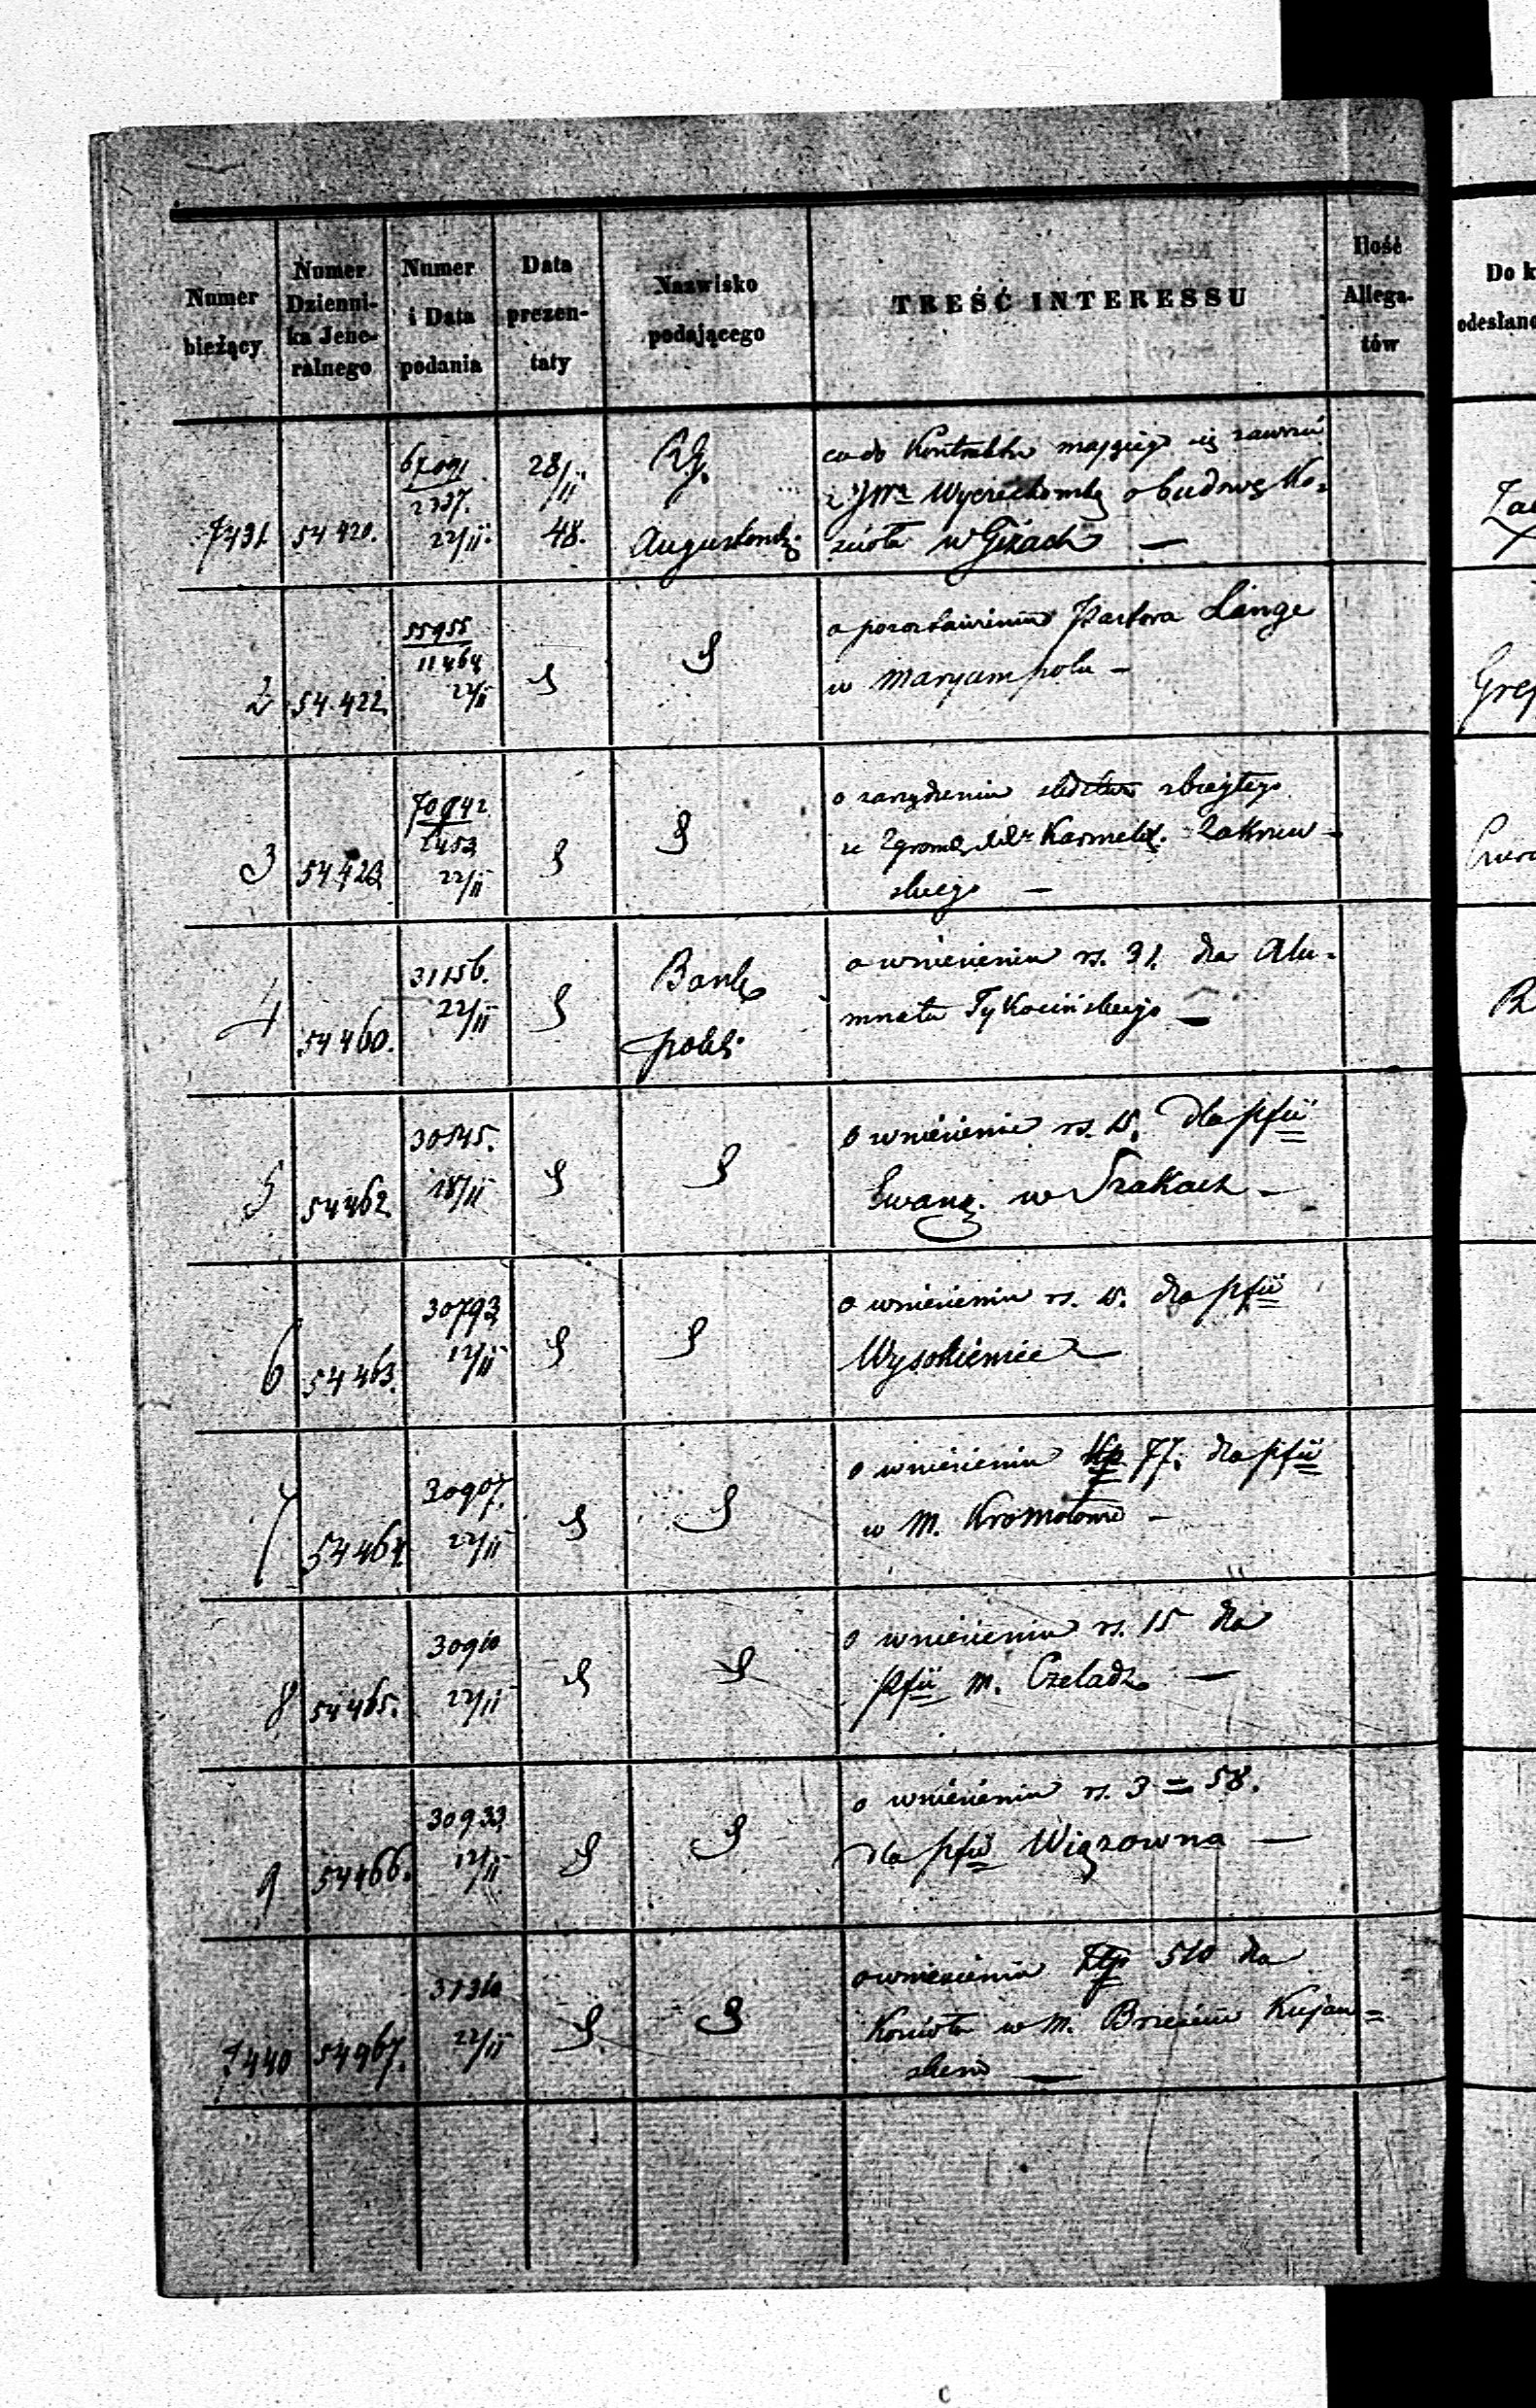 Numer bieżący
Numer Dzienni-ka Jene-ralnego
Numer i Data podania
Data prezen-taty
Nazwisko podającego
TREŚĆ INTERESSU
Ilość Allega-tów
Do k
odesłano
7431. 54 420. 22/11. 28/11 48. Rg. Augustowsk.
co do Kontraktu mającego się zawrzeć
o budowę Ko-
ścioła w Giżach —
2 54.422. 55955 11464 22/11
o pozostawieniu Pastora Lange
w Maryampolu —
3 54 423 22/11
o zarządzeniu śledztwa zbiegłego
ze Zgrom. Karmelit. Zakrzew-
skiego —
4 54 460. 31156. 22/11 Bank polsk.
o wniesieniu rs. 31. dla Alu-
mnatu Tykocińskiego —
5 54462. 30845. 18/11
o wniesienie rs. 15. dla pfii
Ewang. w Szakach —
6 54 463. 30793 12/11
o wniesieniu rs. 15. dla pfii
Wysokienice —
7 54 464. 30907. 22/11
o wniesieniu złp 77. dla pfii
w m. Kromołowie —
8 54465. 30910 22/11
o wniesieniu rs. 15 dla
pfii m. Czeladz —
9 54466. 30933 12/11
o wniesieniu rs. 3 = 58.
dla pfii Wiązowna —
7440 54467. 31310 22/11
o wniesieniu złp 510 dla
Kościoła w m. Brześciu Kujaw=
skim —